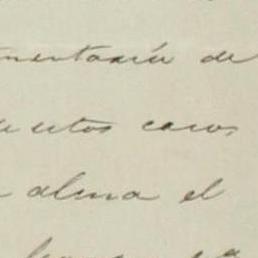 mentaria de
de estos casos
alma el